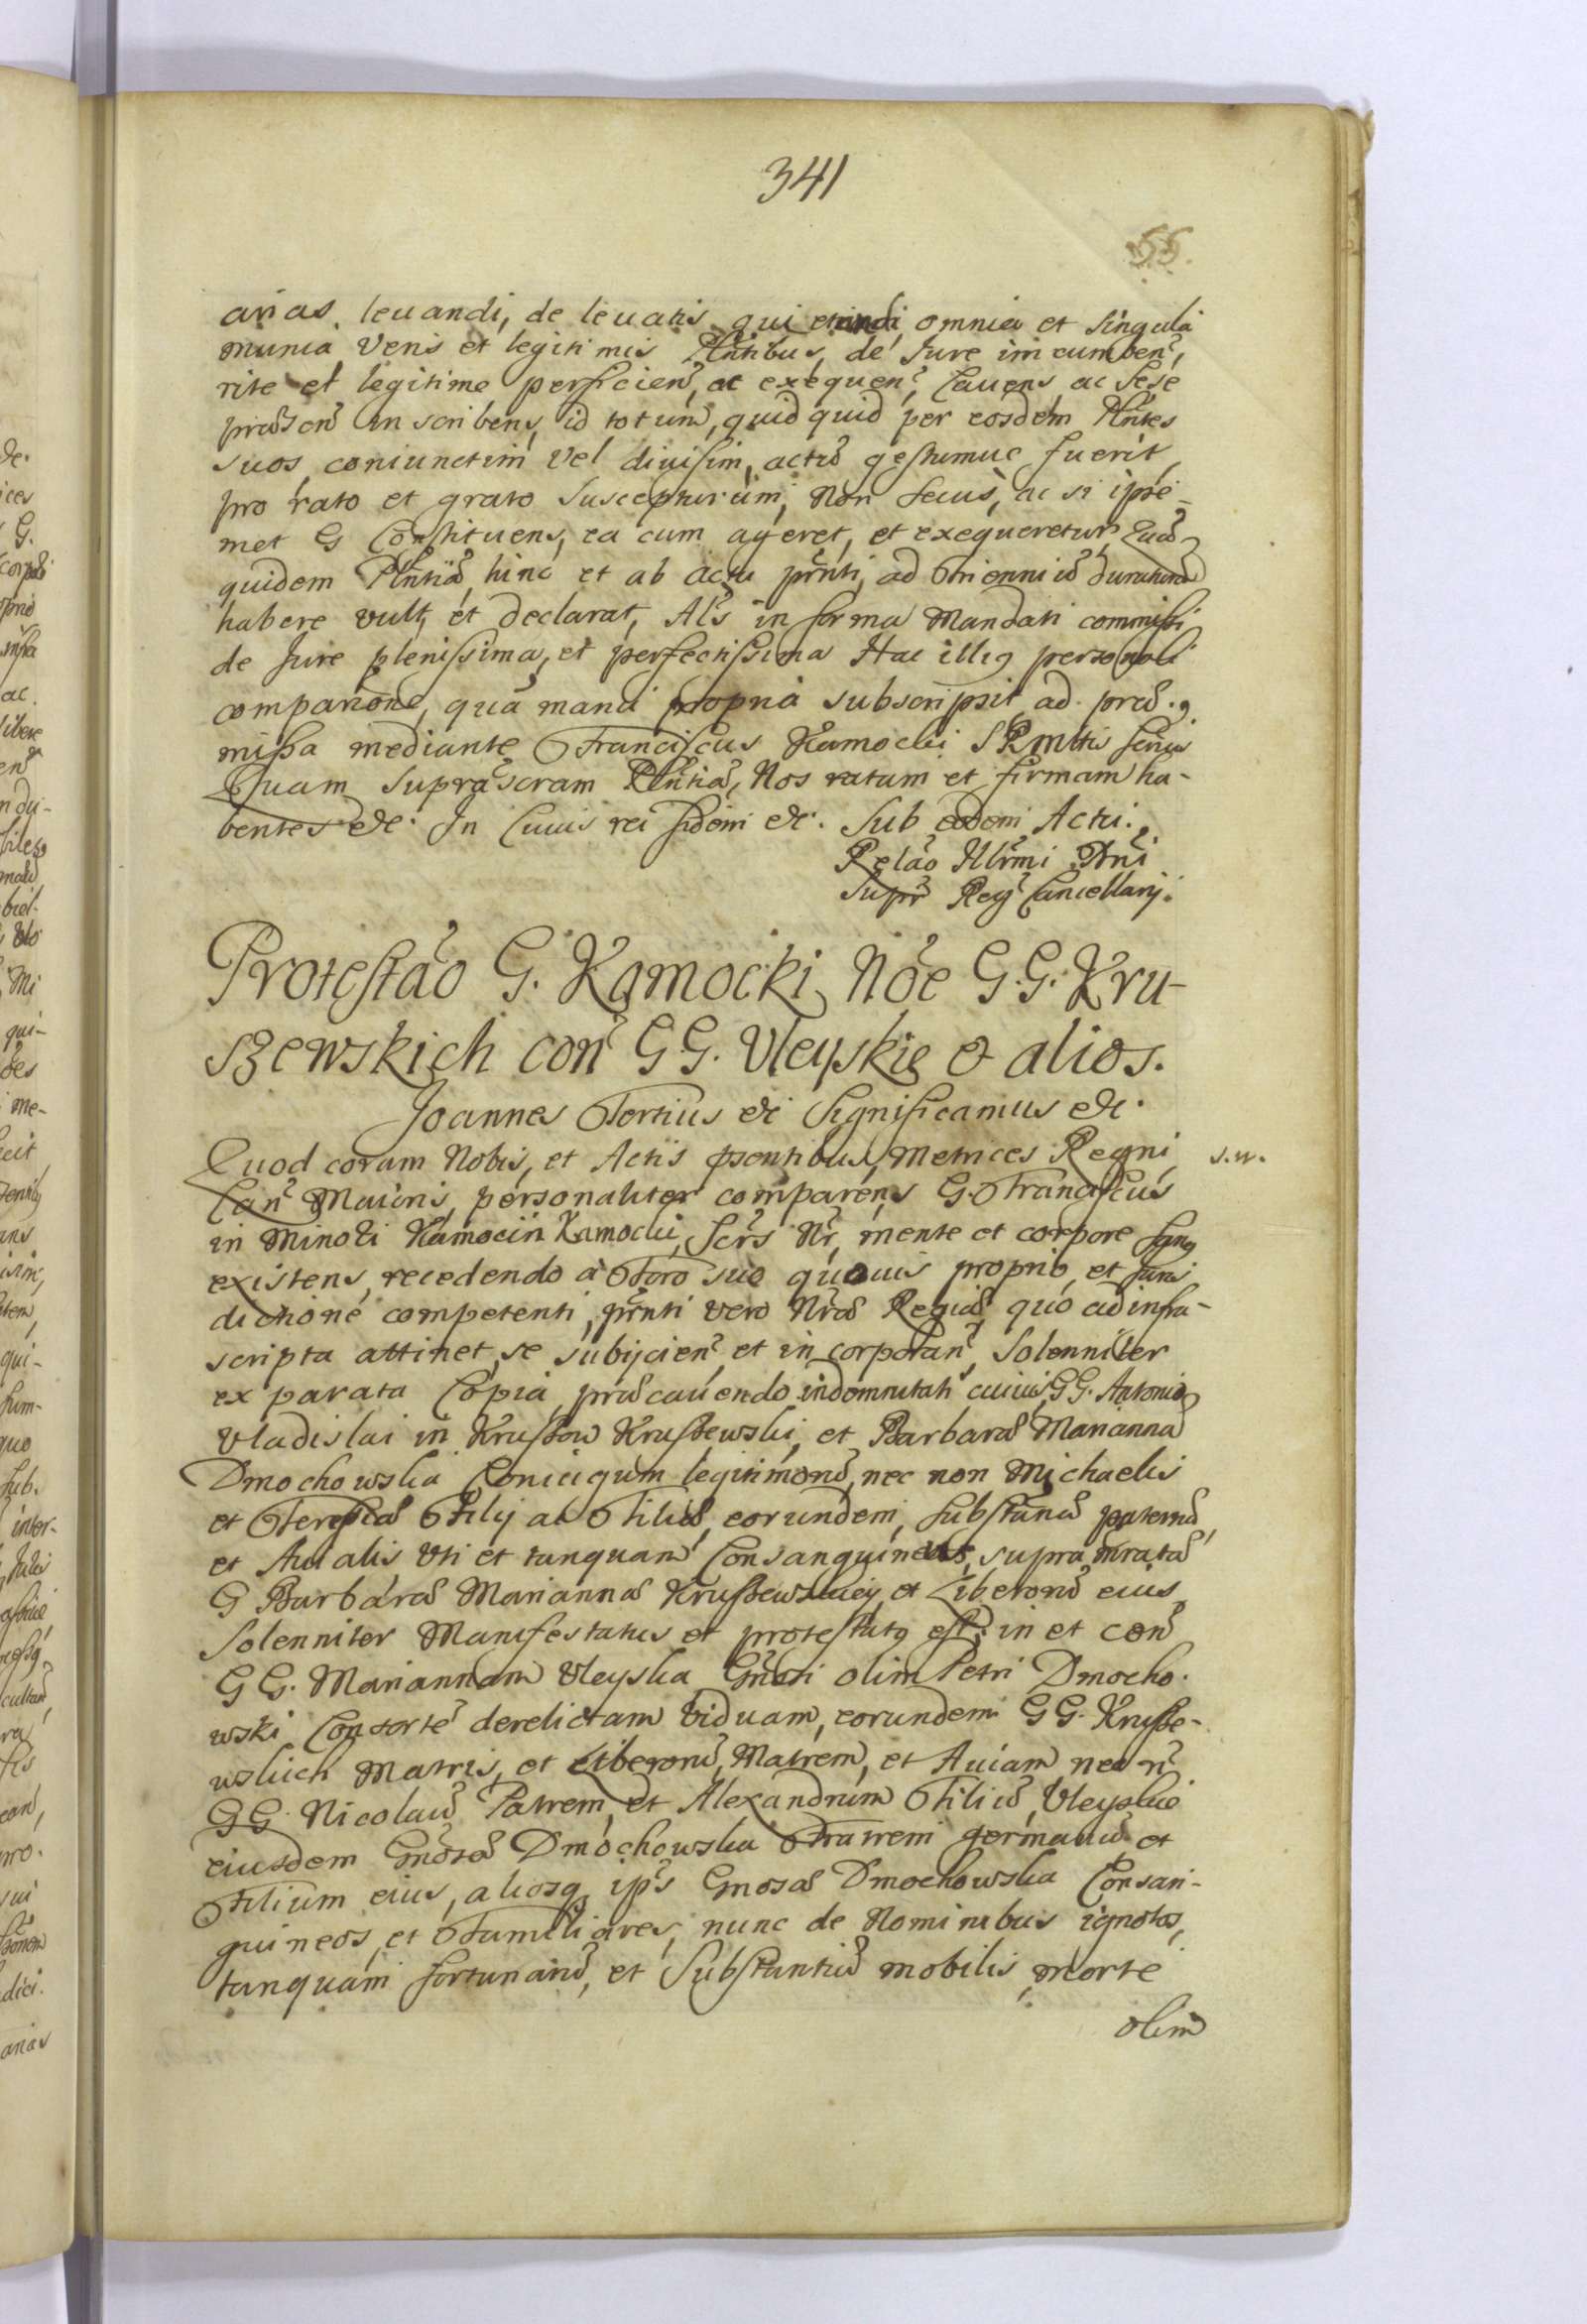 341
55.
arias, levandi, de levatis qui etandi omnia et singula
munia Veris et legitimis Plntibus, de Jure incumben̄,
rite et legitime perficien̄, ac exequen̄, Cavens ac sese
praesen̄ inscribens, id totum, quidquid per eosdem Plntes
suos coniunctim vel divisim, actū gestumue fuerit
pro rato et grato suscepturum, Non secus, ac si ipse-
met G Constituens, ea cum ageret, et exequeretur, Quā
quidem Plntiā, hinc et ab actu pr̄nti, ad Trienniū duraturā
habere vult, et declarat, Als in forma Mandati commissi
de Jure plenissima, et perfectissima Hac illig personali
comparitione, quā manu propria subscripsit ad prae.
missa mediante Franciscus Kamocki S R Mttis
Quam supra scram Plntiā, Nos ratum et firmam ha-
bentes etc. In Cuius rei fidem etc. Sub eodem Actu.
Relāo Illrmi Dni
Supr Reg Cancellarij.
Protestāo G. Kamocki Nōe G.G. Kru-
szewskich con G.G. Uleyskie et alios.
Joannes Tertius etc Significamus etc.
Quod coram Nobis, et Actis psentibus, Metrices Regni s.w.
Can Maioris, personaliter comparens G. Franciscus
in Minori Kamocin Kamocki, Scrs Nr, mente et corpore sanq
existens, recedendo a Foro suo quovis proprio, et Juris
dictione competenti, pr̄nti vero Nrae Regiae, quo ad infra-
scripta attinet, se subijcien̄ et incorporan̄, Solenniter
ex parata Copia, praecavendo indemnitati cuiuis GG. Antonio
Vladislai in Krussow Krussewski, et Barbarae Marianna
Dmochowska Coniugum legitimorū, nec non Michaelis
et Teresiae Filij ac Filiae, eorundem, substantiā paternā
et Avialis Uti et tanquam Consanguineus, supra nratae
G Barbarae Mariannae Krussewskiey et Liberorū eius,
Solenniter Manifestatus et protestatq est, in et con
GG. Mariannam Uleyska Gnosi olim Petri Dmocho.
wski Consorte derelictam Viduam, eorundem GG. Krusse-
wskich Matris, et Liberorū, Matrem, et Aviam nec n
GG. Nicolaū Patrem, et Alexandrum Filiū, Uleyskie
eiusdem Gnosae Dmochowska Fratrem germanū et
Filium eius, aliosq ips Gnosae Dmochowska Consan-
guineos, et Familiares, nunc de Nominibus ignotos,
tanquam fortunarū, et Substantiae mobilis, morte
olim